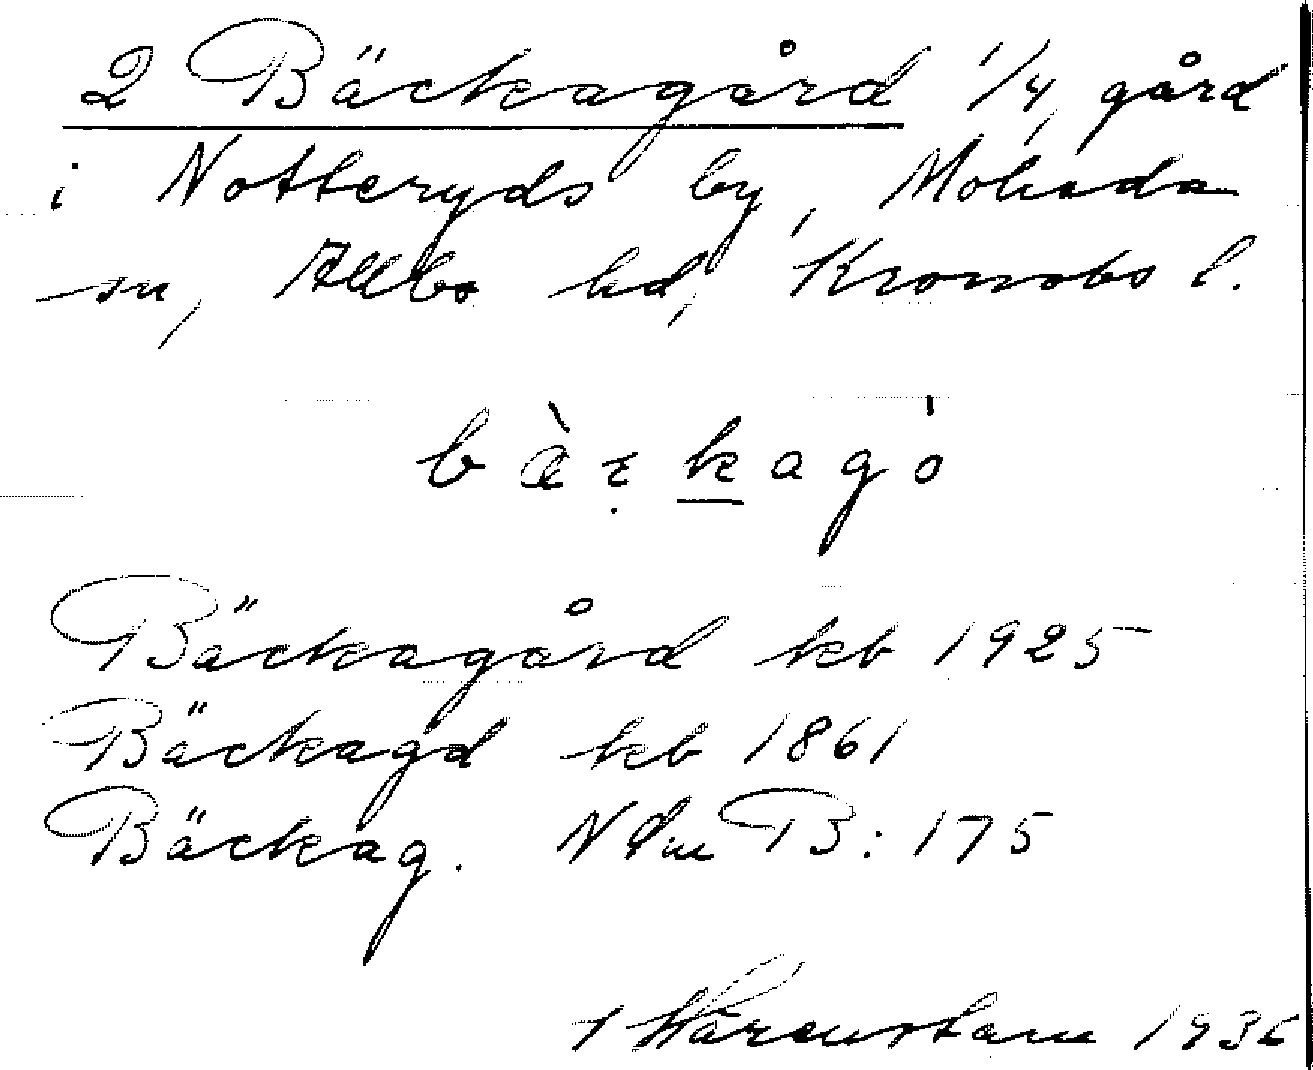 2 Bäckagård 1/4 gård
i Notteryds by, Moheda
sn, Allbo hd, Kronobs l.
bæ̀ꞇ̣kagó
Bäckagård kb 1925
Bäckagd kb 1861
Bäckag. N dm B: 175
Wärenstam 1936